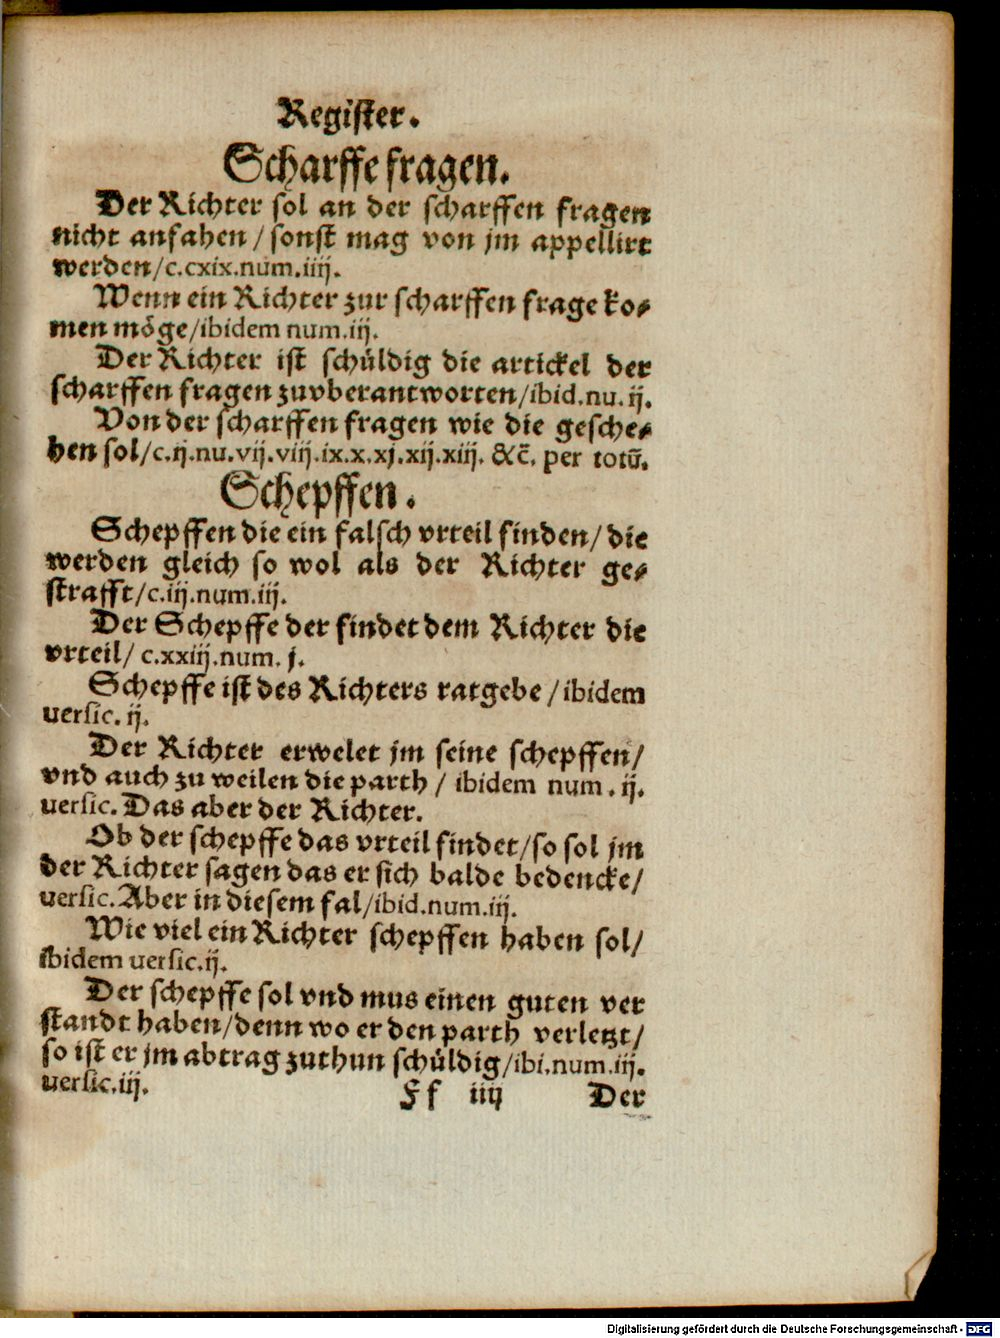 Register.
Scharffe fragen.
Der Richter sol an der scharffen fragen
nicht anfahen / sonst mag von jm appellirt
werden/c.cxix.num.iiij.
Wenn ein Richter zur scharffen frage ko⸗
men möge/ibidem num.iij.
Der Richter ist schüldig die artickel der
scharffen fragen zuvberantworten/ibid.nu.ij.
Von der scharffen fragen wie die gesche⸗
hen sol/c.ij.nu.vij.viij.ix.x.xj.xij.xiij. &c̃. per totũ.
Schepffen.
Schepffen die ein falsch vrteil finden/ die
werden gleich so wol als der Richter ge⸗
strafft/c.iij.num.iij.
Der Schepffe der findet dem Richter die
vrteil/ c.xxiij.num. j.
Schepffe ist des Richters ratgebe /ibidem
uersic. ij.
Der Richter erwelet jm seine schepffen/
vnd auch zu weilen die parth / ibidem num . ij.
uersic. Das aber der Richter.
Ob der schepffe das vrteil findet/so sol jm
der Richter sagen das er sich balde bedencke/
uersic. Aber in diesem fal/ibid.num.iij.
Wie viel ein Richter schepffen haben sol/
ibidem uersic.ij.
Der schepffe sol vnd mus einen guten ver
standt haben/denn wo er den parth verletzt/
so ist er jm abtrag zuthun schüldig/ibi.num.iij.
uersic.iij.
Ff iiij Der
Digitalisierung gefördert durch die Deutsche Forschungsgemeinschaft - DFG